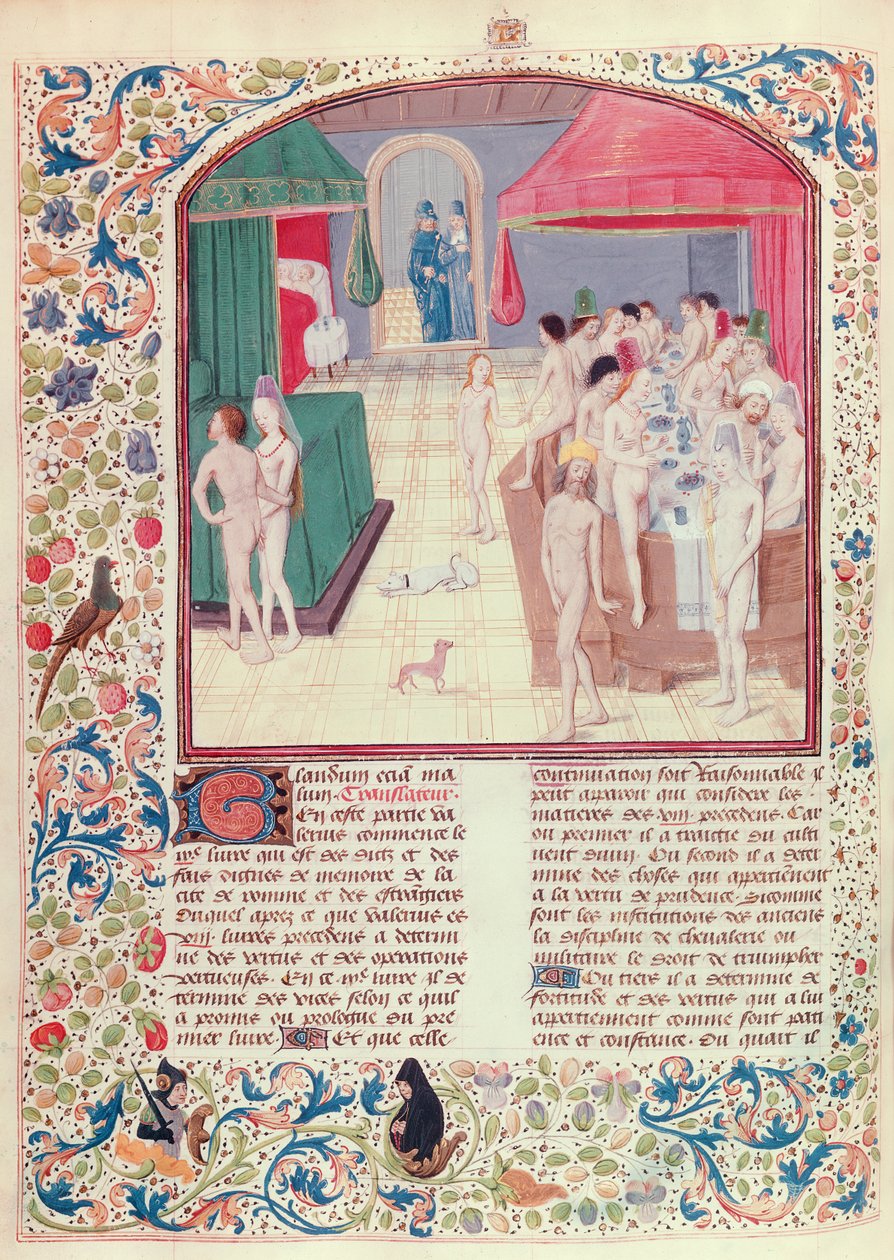 Blandum eciam ma
lum. Translateur.
En ceste partie va
lerius commence le
ixe. livre qui est des dictz et des
fais dignes de memoire de la
cite de romme et des estrangiers
Duquel aprez ce que valerius es
viij. livres precedens a determi
ne des vertus et des operations
vertueuses. En ce ixe. livre il de
termine des vices selon ce quil
a promis ou prologue du pre
mier livre. Et que celle
continuation soit Raisonnable il
peut apparoir qui considere les
matieres des viij. precedens. Car
ou premier il a traictie du culti
vement divin. Ou second il a deter
mine des choses qui appartienent
a la vertu de prudence. Sicomme
sont les institutions des anciens
la discipline de chevalerie ou
militaire le droit de triumpher
Ou tiers il a determine de
fortitude et des vertus qui a lui
appertiennent comme sont paci
ence et constance. Ou quart il